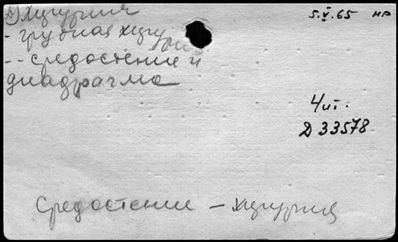 Хирургия
5.V.65 НР
- грудная хирургия
-- средостение и
диафрагма
4 VI.
D 33578
Средостение - хирургия